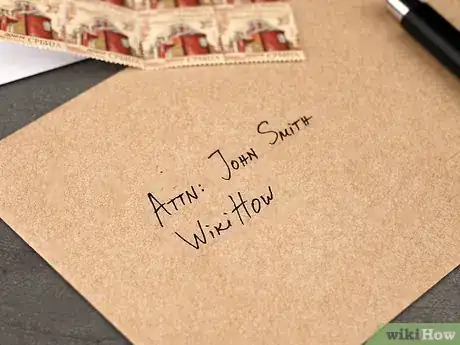 СРБИЈА
ATTN: JOHN SMITH
WIKIHOW
wikiHow